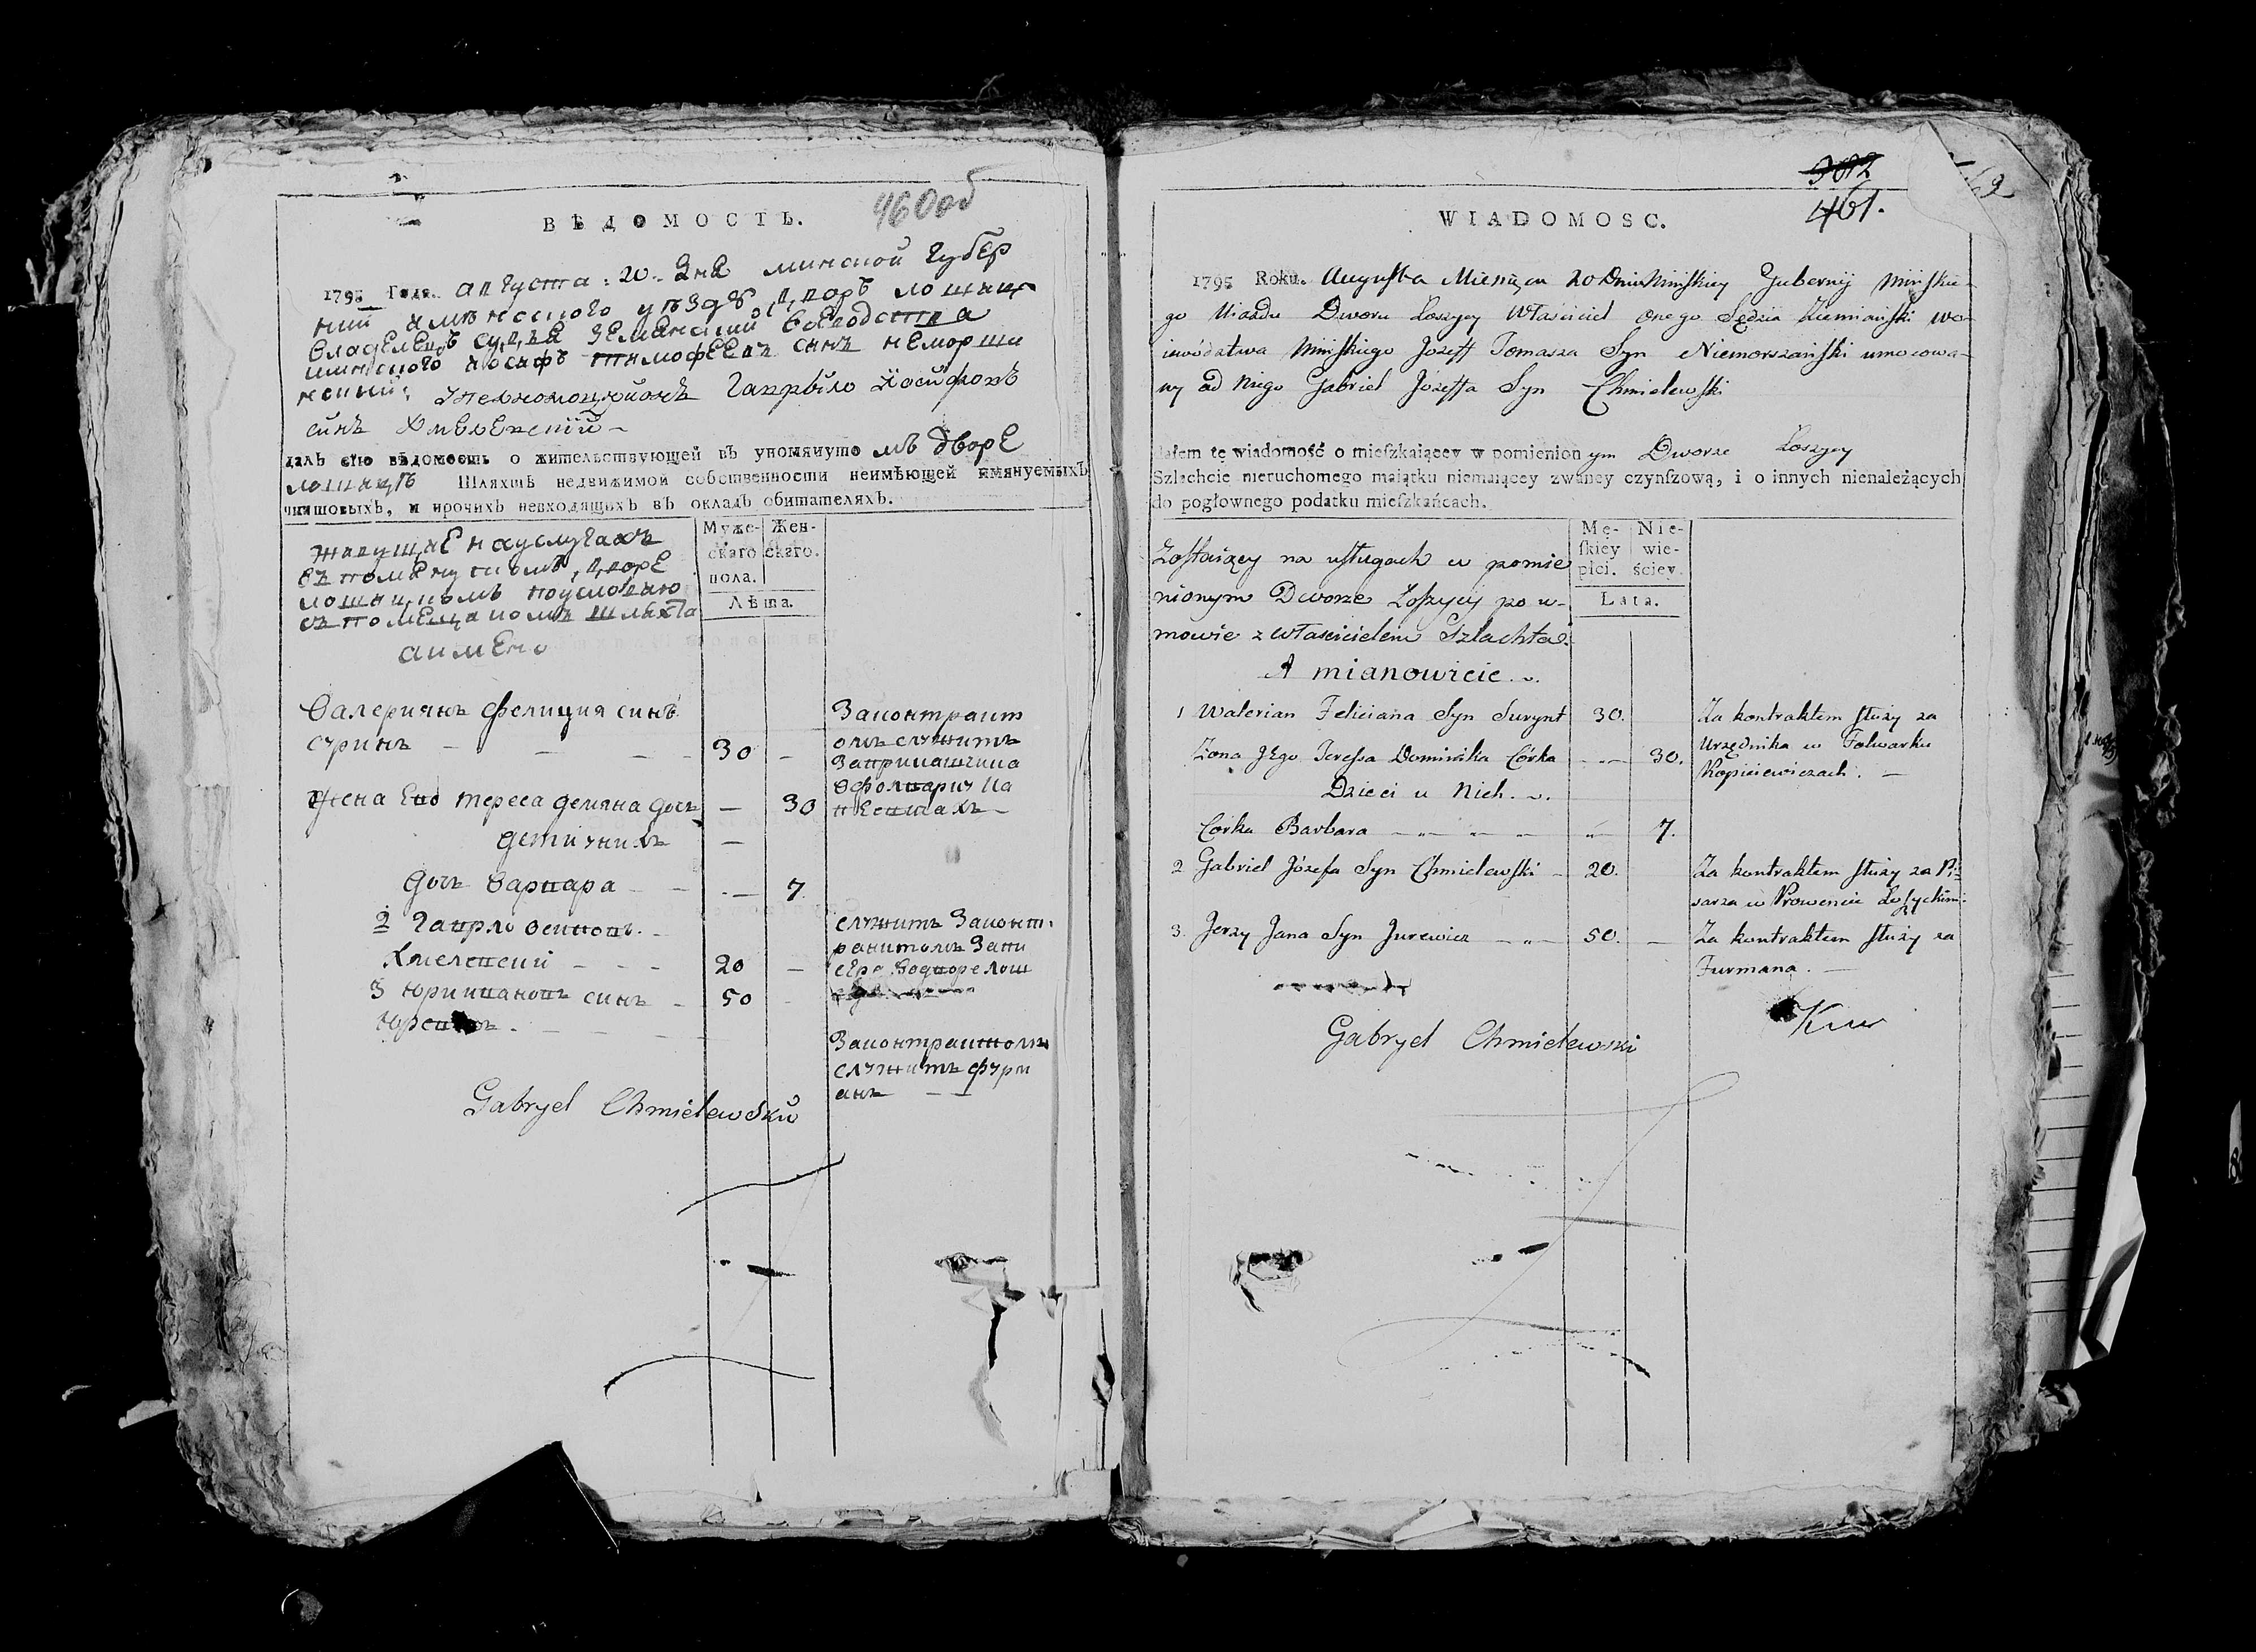 460об
ВѢДОМОСТЬ.
1795 Года. августа: 20. дня минской губер
нии и минского уѣзда двора лошиц
владелецъ судья земянский воеводства
минского иосифъ тимофеевъ синъ немориша
нский: Гаврило иосифовъ
синъ Хмелевский
далъ сію вѣдомость о жительствующей въ упомянуто мъ дворе
лошицѣ Шляхтѣ недвижимой собственности неимѣющей имянуемыхъ
чиншовыхъ, и прочихъ невходящихъ въ окладъ обитателяхъ.
Муже- Жен-
скаго скаго.
пола.
Лѣта.
живущие на услугахъ
въ помянутомъ дворе
лошицкомъ по условию
съ помещикомъ шляхта
а имено
Валериянъ Фелиция синъ
суринъ 30
Законтракт
омъ служитъ
заприкащика
вфолварку Ка
Жена Его тереса демяна дочь — 30
дети у нихъ —
дочь варвара — 7
2 Гаврло осипов.
Хмелевский 20 —
служитъ законт.
рактомъ запи
сера водворе лош
3 юрий иановъ синъ 50
юревичъ
Законтрактомъ
служитъ фурм
анъ
Gabryel Chmielewski
3812
461.
62
WIADOMOSC.
1795 Roku. Augusta Miesiąca 20 Dnia Minskiey Gubernij Minskie-
go Uiazdu Dworu Łoszycy Właściciel onego Sędzia Ziemiański wo-
iewództwa Minskiego Jozeff Tomasza Syn Niemorszański umocowa-
ny od Niego Gabriel Józeffa Syn Chmielewski
dałem tę wiadomość o mieſzkaiącey w pomienion ym Dworze Łoszycy
Szlachcie nieruchomego maiątku niemaiącey zwaney czynſzową, i o innych nienależących
do pogłownego podatku mieſzkańcach.
Mę- Nie-
ſkiey wie-
płci. ściey.
Lata.
Zostaiący na usługach w pomie
nionym Dworze Łoszycy po u-
mowie z właścicielem Szlachta:
A mianowicie
1 Walerian Feliciana Syn Surynt 30.
Za kontraktem służy za
Urzędnika w Folwarku
Kopiciewiczach.
Zona Jego Teressa Dominika Córka 30.
Dzieci u Nich.
Corka Barbara 7.
2 Gabriel Józefa Syn Chmielewski 20.
Za kontraktem służy za Pi-
sarza w Prowencie Łoszyckim.
3. Jerzy Jana Syn Jurewicz 50.
Za kontraktem służy za
Furmana.
Gabryel Chmielewski